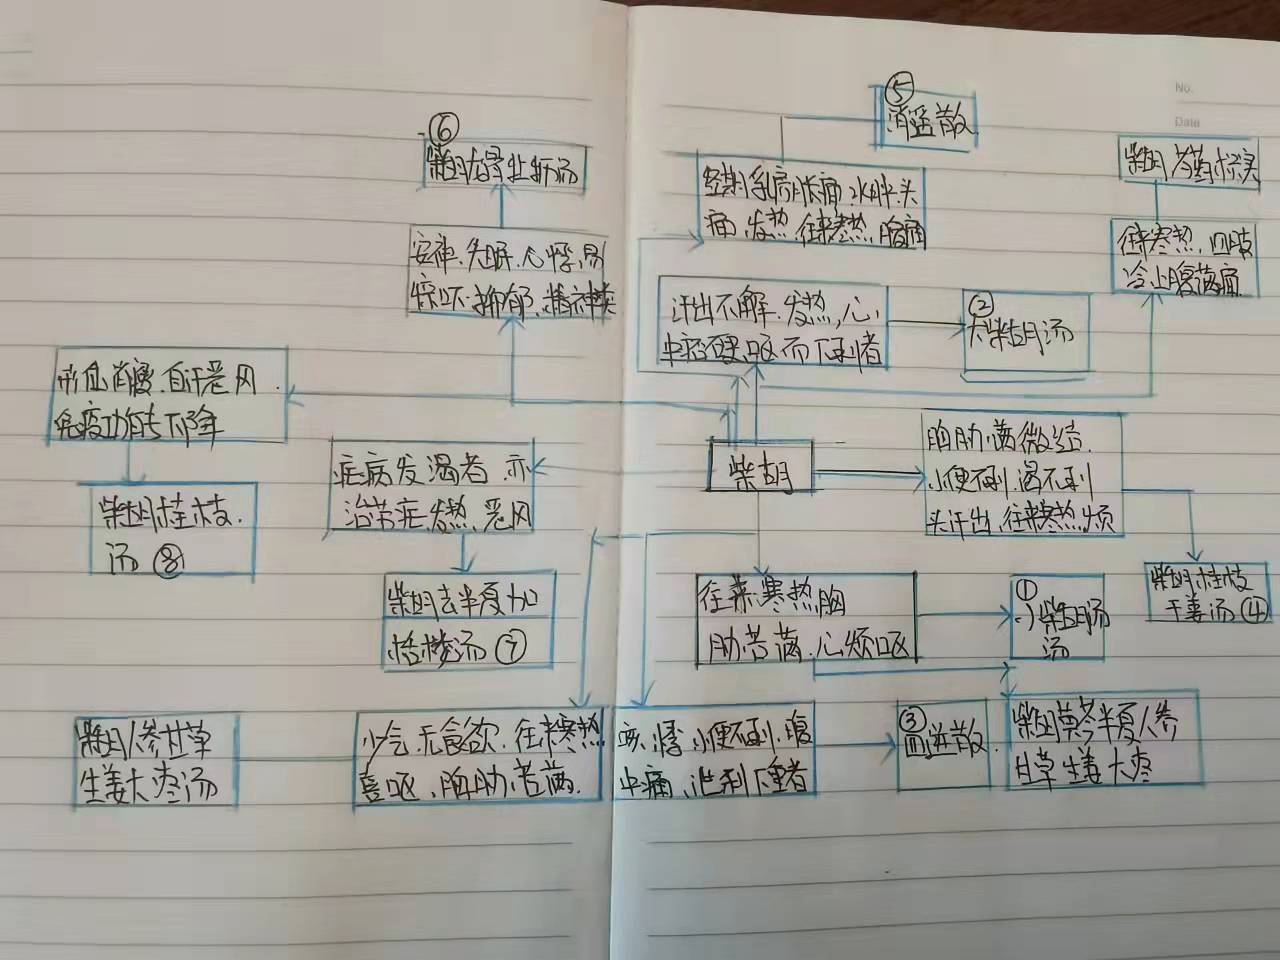 No.
Date
⑤
逍遥散
⑥
柴胡龙骨牡蛎汤
经期乳房胀痛.水肿.头
痛.发热.往来寒热.腹痛
柴胡芍药枳实
往来寒热.四肢
冷.上腹满痛
安神.失眠.心悸.易
惊吓.抑郁.精神类
汗出不解.发热,心
中痞硬,呕而下利者
②
大柴胡汤
形血消瘦.自汗恶风.
免疫功能下降
柴胡桂枝.
汤⑧
疟病发渴者.亦
治劳疟.发热.恶风
柴胡去半夏加
栝楼汤⑦
柴胡
胸胁满微结.
小便不利.渴不利
头汗出,往来寒热.烦
柴胡桂枝
干姜汤④
往来寒热胸
胁苦满.心烦呕
①
小柴胡汤
汤
柴胡人参甘草
生姜大枣汤
少气.无食欲.往来寒热
喜呕、胸胁苦满.
咳.悸.小便不利.腹
中痛、泄利下重者
③
四逆散.
柴胡黄芩半夏人参
甘草生姜大枣